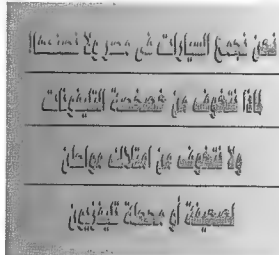 نحن نجمع السيارات فى مصر ولا نصنعها!
لماذا نتخوف من خصخصة التليفونات
ولا نتخوف من امتلاك مواطن
لصحيفة أو محطة تليفزيون